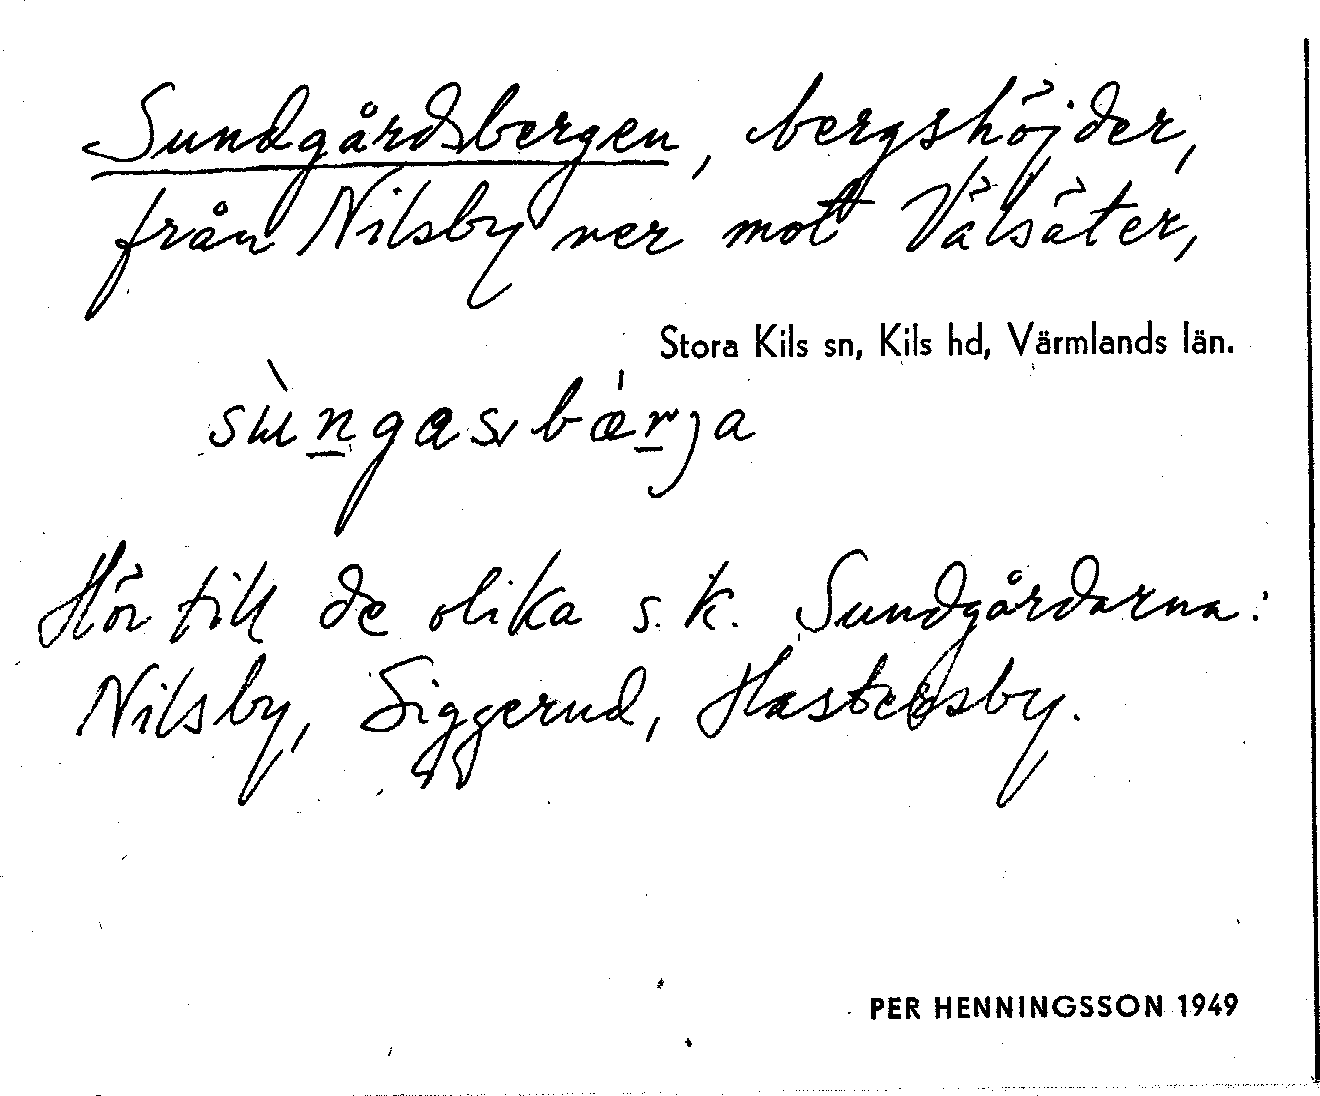 Sundgårdsbergen, bergshöjder,
från Nilsby ner mot Välsäter,
Stora Kils sn, Kils hd, Värmlands län.
Hör till de olika s.k. Sundgårdarna:
Nilsby, Siggerud, Hastersby.
PER HENNINGSSON 1949